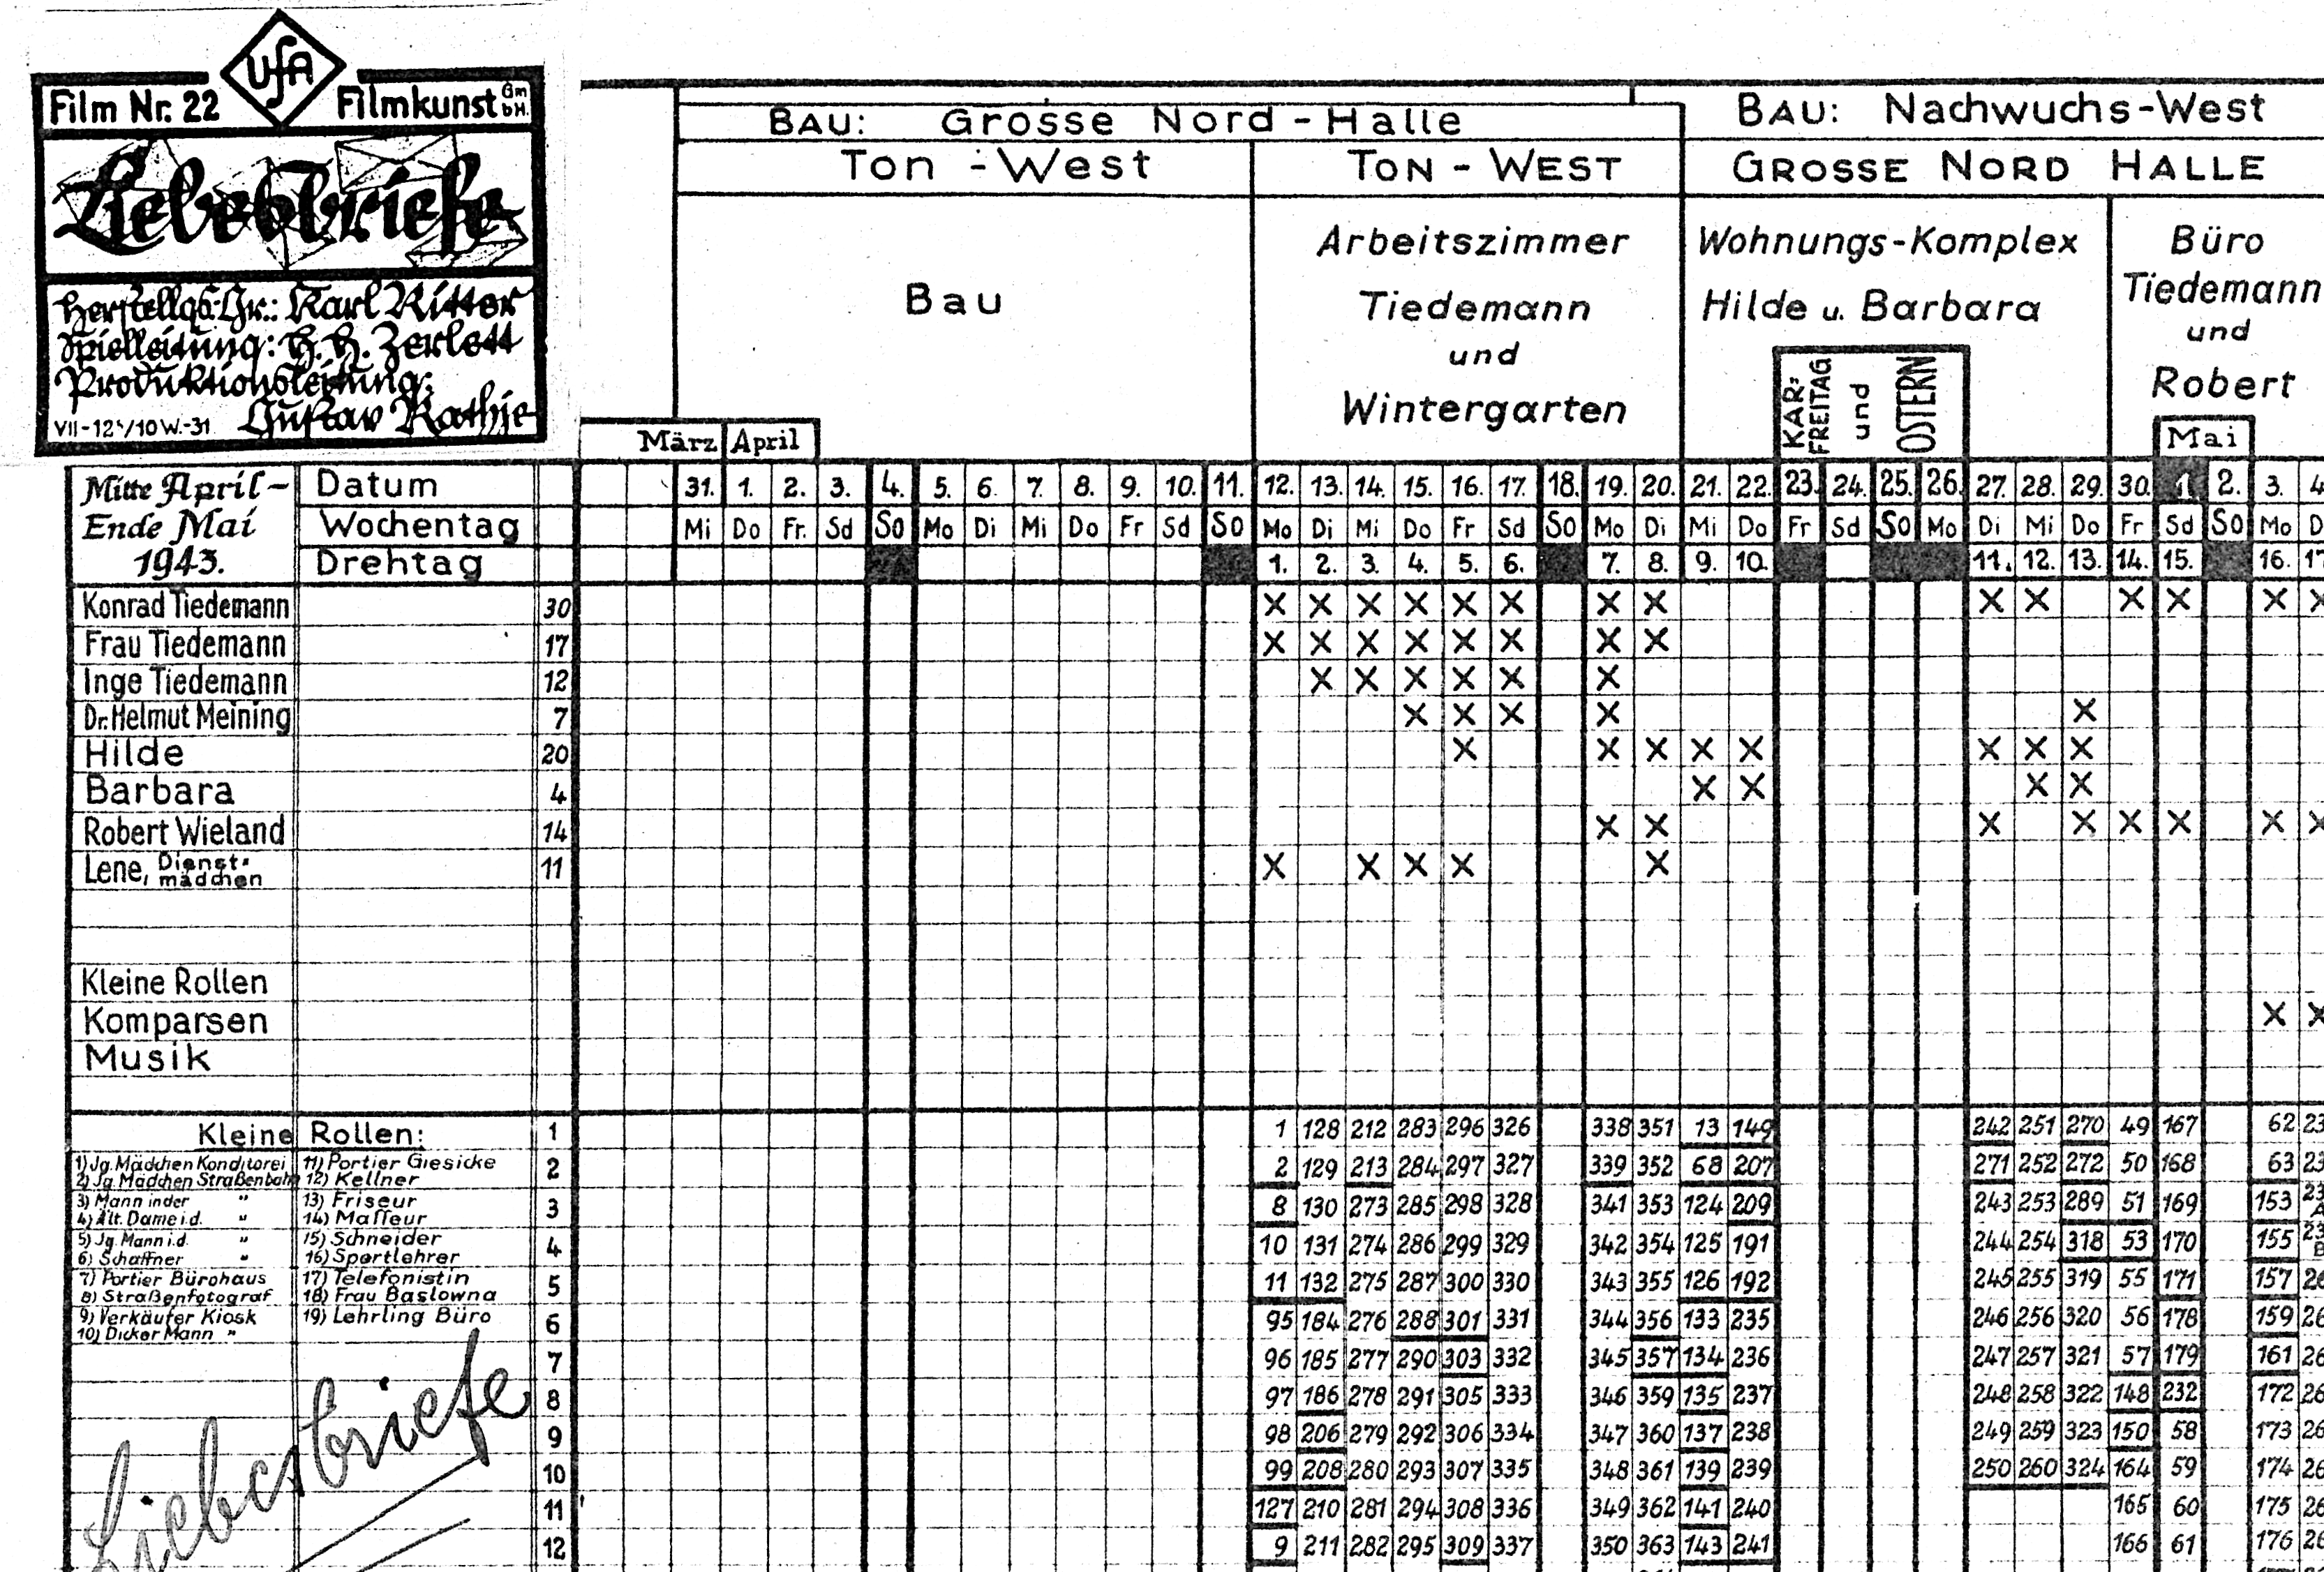 UfA
Film Nr. 22 Filmkunst GmbH.
Liebesbriefe
Herstellgs.Gr.: Karl Ritter
Spielleitung: H. H. Zerlett
Produktionsleitung:
Gustav Rathje
BAU: Grosse Nord-Halle BAU: Nachwuchs-West
Ton-West TON-WEST GROSSE NORD HALLE
Bau
Arbeitszimmer
Tiedemann
und
Wintergarten
Wohnungs-Komplex
Hilde u. Barbara
KAR-
FREITAG
und
OSTERN
Büro
Tiedemann
und
Robert
März April Mai
Mitte April-
Ende Mai
1943.
Datum 31. 1. 2. 3. 4. 5. 6. 7. 8. 9. 10. 11. 12. 13. 14. 15. 16. 17. 18. 19. 20. 21. 22. 23. 24. 25. 26. 27. 28. 29. 30. 1 2. 3.
Wochentag Mi Do Fr. Sd So Mo Di Mi Do Fr Sd So Mo Di Mi Do Fr Sd So Mo Di Mi Do Fr Sd So Mo Di Mi Do Fr Sd So Mo
Drehtag 1. 2. 3. 4. 5. 6. 7. 8. 9. 10. 11. 12. 13. 14. 15. 16.
Konrad Tiedemann 30 X X X X X X X X X X X X X X
Frau Tiedemann 17 X X X X X X X X
Inge Tiedemann 12 X X X X X X
Dr. Helmut Meining 7 X X X X X
Hilde 20 X X X X X X X X
Barbara 4 X X X X
Robert Wieland 14 X X X X X X X X
Lene, Dienst-
mädchen 11 X X X X X
Kleine Rollen
Komparsen X X
Musik
Kleine Rollen: 1 1 128 212 283 296 326 338 351 13 149 242 251 270 49 167 62
1) Jg. Mädchen Konditorei 11) Portier Giesicke 2 2 129 213 284 297 327 339 352 68 207 271 252 272 50 168 63
2) Jg. Mädchen Straßenbahn 12) Kellner
3) Mann in der " 13) Friseur 3 8 130 273 285 298 328 341 353 124 209 243 253 289 51 169 153
4) Ält. Dame i.d. " 14) Masseur
5) Jg. Mann i.d. " 15) Schneider 4 10 131 274 286 299 329 342 354 125 191 244 254 318 53 170 155
6) Schaffner " 16) Sportlehrer
7) Portier Bürohaus 17) Telefonistin 5 11 132 275 287 300 330 343 355 126 192 245 255 319 55 171 157
8) Straßenfotograf 18) Frau Baslowna
9) Verkäufer Kiosk 19) Lehrling Büro 6 95 184 276 288 301 331 344 356 133 235 246 256 320 56 178 159
10) Dicker Mann "
7 96 185 277 290 303 332 345 357 134 236 247 257 321 57 179 161
8 97 186 278 291 305 333 346 359 135 237 248 258 322 148 232 172
9 98 206 279 292 306 334 347 360 137 238 249 259 323 150 58 173
10 99 208 280 293 307 335 348 361 139 239 250 260 324 164 59 174
11 127 210 281 294 308 336 349 362 141 240 165 60 175
12 9 211 282 295 309 337 350 363 143 241 166 61 176
Liebesbriefe